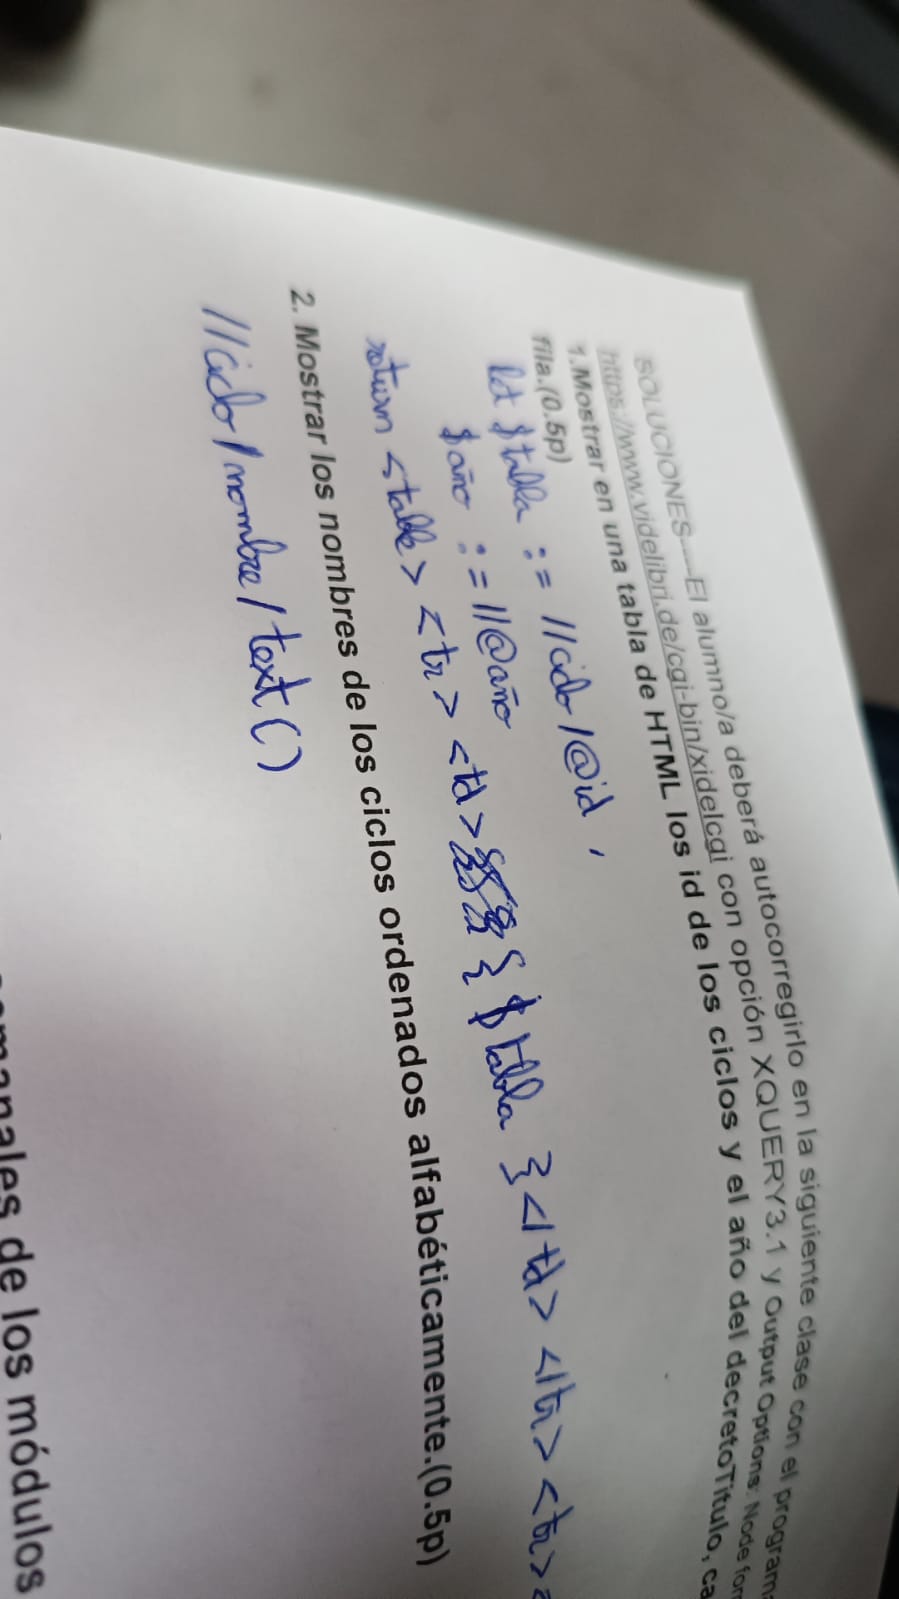 SOLUCIONES----El alumno/a deberá autocorregirlo en la siguiente clase con el program
https://www.videlibri.de/cgi-bin/xidelcgi con opción XQUERY3.1 y Output Options: Node for
1.Mostrar en una tabla de HTML los id de los ciclos y el año del decretoTitulo, ca
fila.(0.5p)
let $tabla := //ciclo/@id ,
$año := //@año
return <table> <tr> <td> { $tabla } </td> </tr> <tr>
2. Mostrar los nombres de los ciclos ordenados alfabéticamente.(0.5p)
//ciclo/nombre/text()
manales de los módulos